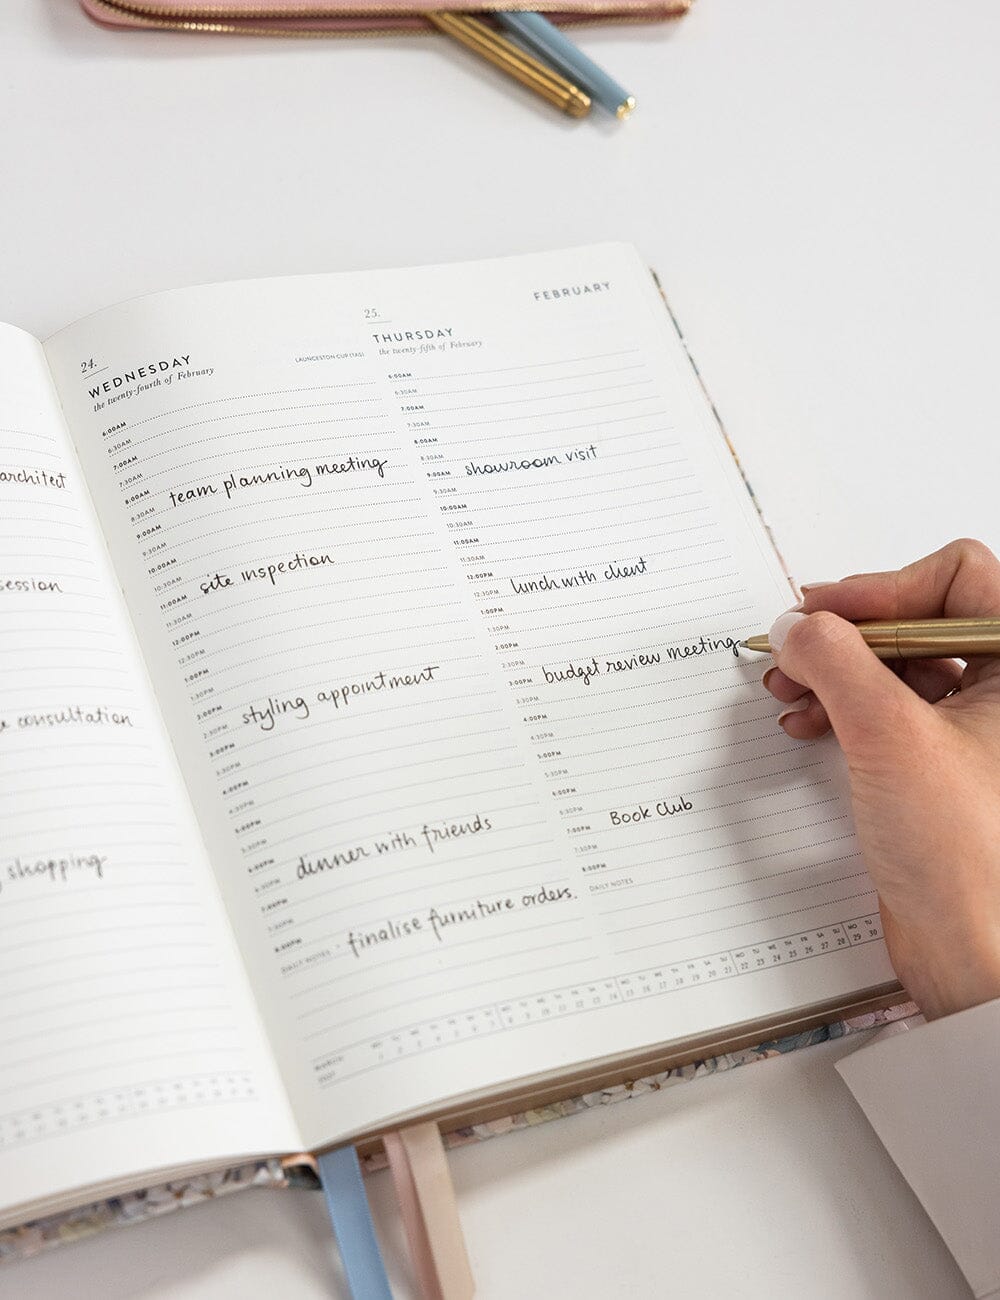 architect
session
consultation
shopping
24.
WEDNESDAY
the twenty-fourth of February
LAUNCESTON CUP (TAS)
6:00AM
6:30AM
7:00AM
7:30AM
8:00AM
team planning meeting
8:30AM
9:00AM
9:30AM
10:00AM
10:30AM
site inspection
11:00AM
11:30AM
12:00PM
12:30PM
1:00PM
1:30PM
2:00PM
styling appointment
2:30PM
3:00PM
3:30PM
4:00PM
4:30PM
5:00PM
5:30PM
6:00PM
dinner with friends
6:30PM
7:00PM
7:30PM
8:00PM
DAILY NOTES
finalise furniture orders.
25.
FEBRUARY
THURSDAY
the twenty-fifth of February
6:00AM
6:30AM
7:00AM
7:30AM
8:00AM
8:30AM
9:00AM showroom visit
9:30AM
10:00AM
10:30AM
11:00AM
11:30AM
12:00PM
12:30PM lunch with client
1:00PM
1:30PM
2:00PM
2:30PM
3:00PM budget review meeting
3:30PM
4:00PM
4:30PM
5:00PM
5:30PM
6:00PM
6:30PM
7:00PM Book Club
7:30PM
8:00PM
DAILY NOTES
MARCH MO TU WE TH FR SA SU MO TU WE TH FR SA SU MO TU WE TH FR SA SU MO TU WE TH FR SA SU MO TU
2021 1 2 3 4 5 6 7 8 9 10 11 12 13 14 15 16 17 18 19 20 21 22 23 24 25 26 27 28 29 30